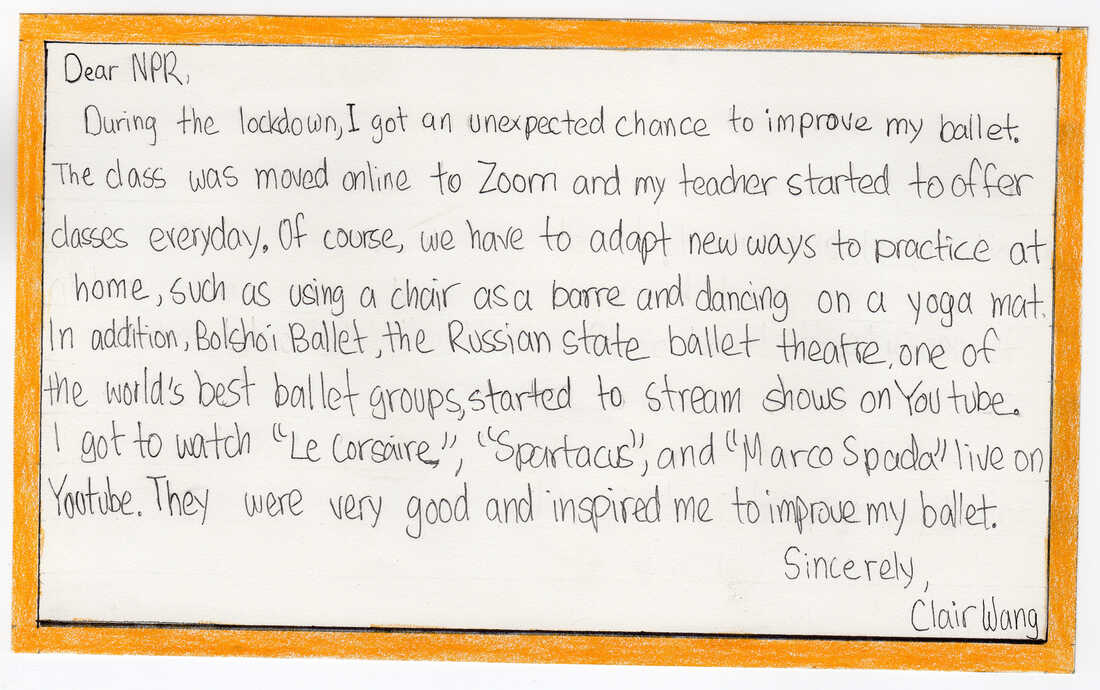 Dear NPR,
During the lockdown, I got an unexpected chance to improve my ballet.
The class was moved online to Zoom and my teacher started to offer
classes everyday. Of course, we have to adapt new ways to practice at
home, such as using a chair as a barre and dancing on a yoga mat.
In addition, Bolshoi Ballet, the Russian state ballet theatre, one of
the world's best ballet groups, started to stream shows on YouTube.
I got to watch "Le Corsaire", "Spartacus", and "Marco Spada" live on
Youtube. They were very good and inspired me to improve my ballet.
Sincerely,
Clair Wang